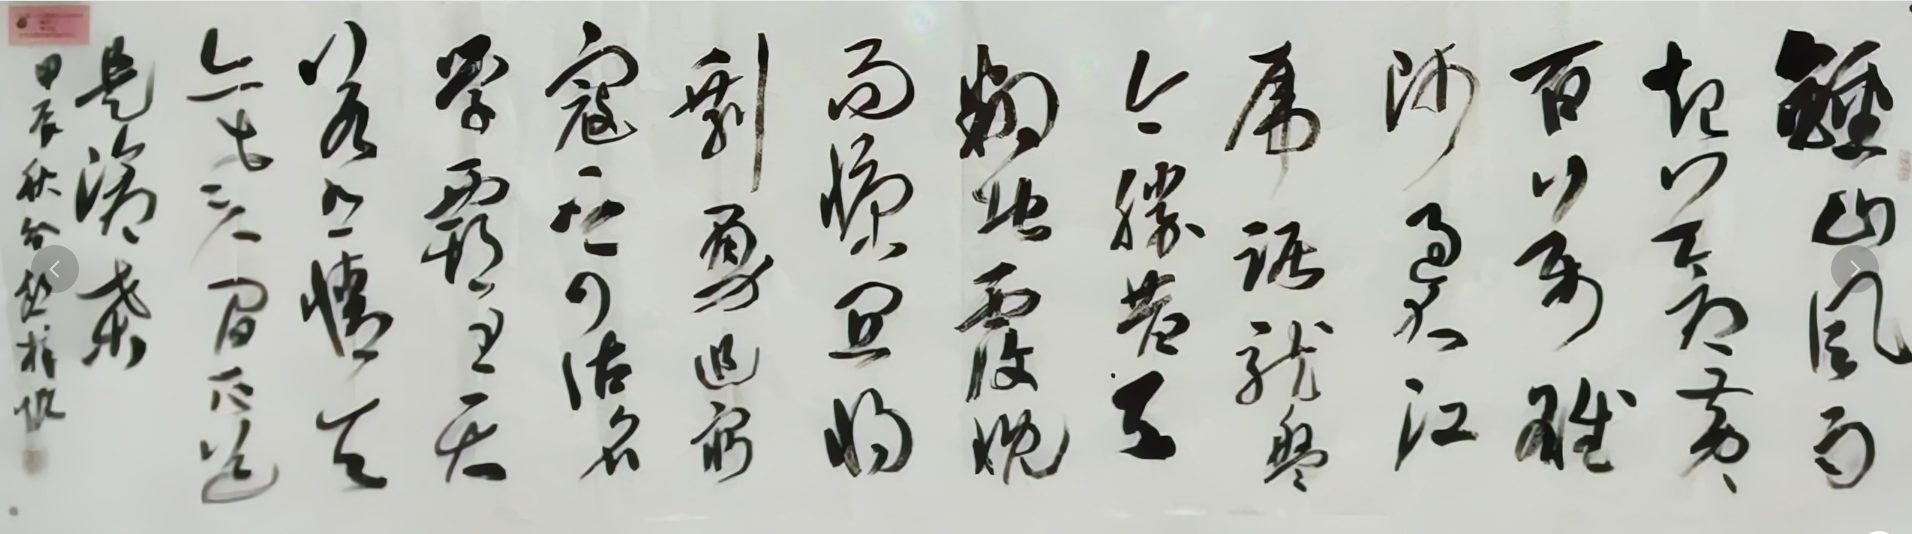 鍾山风雨
起蒼黄
百萬雄
师过大江
虎踞龍盘
今勝昔天
翻地覆慨
而慷宜将
剩勇追穷
寇不可沽名
学霸王天
若有情天
亦老人间正道
是滄桑
甲辰秋分